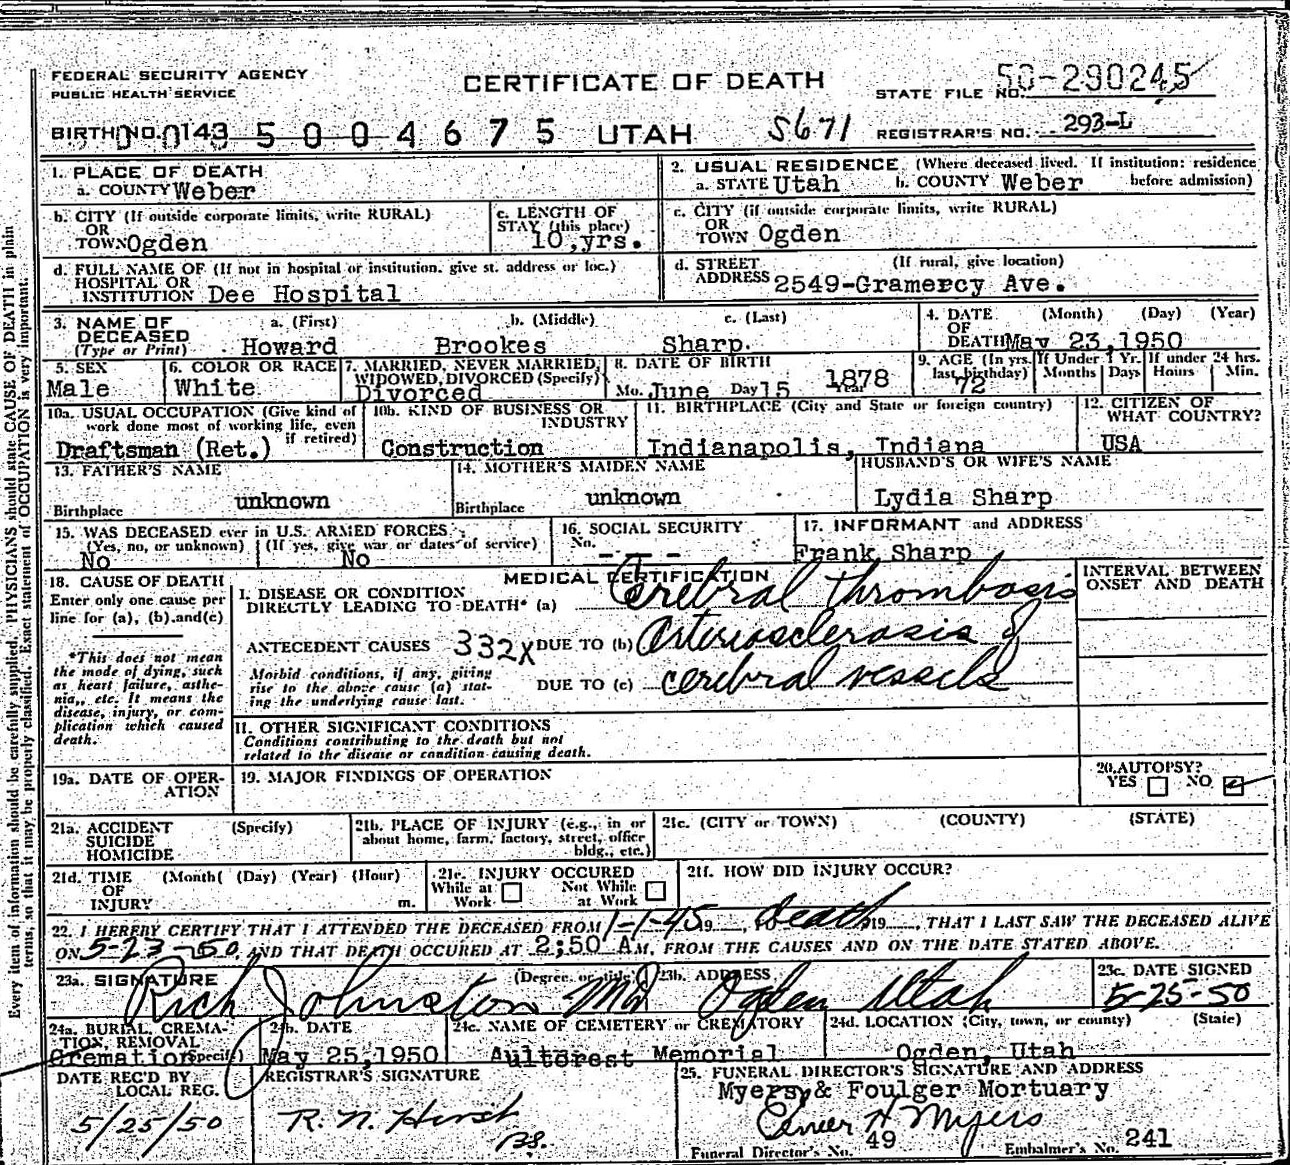 FEDERAL SECURITY AGENCY
PUBLIC HEALTH SERVICE
CERTIFICATE OF DEATH
STATE FILE NO. 50-290245
BIRTH NO. 0143 5004675 UTAH 5671 REGISTRAR'S NO. 293-L
1. PLACE OF DEATH
a. COUNTY Weber
2. USUAL RESIDENCE (Where deceased lived. If institution: residence before admission)
a. STATE Utah b. COUNTY Weber
b. CITY (If outside corporate limits, write RURAL)
OR
TOWN Ogden
c. LENGTH OF
STAY (this place)
10 yrs.
c. CITY (if outside corporate limits, write RURAL)
OR
TOWN Ogden
d. FULL NAME OF (If not in hospital or institution, give st. address or loc.)
HOSPITAL OR
INSTITUTION Dee Hospital
d. STREET (If rural, give location)
ADDRESS 2549-Gramercy Ave.
3. NAME OF DECEASED
(Type or Print)
a. (First) b. (Middle) c. (Last)
Howard Brookes Sharp.
4. DATE OF DEATH (Month) (Day) (Year)
May 23, 1950
5. SEX
Male
6. COLOR OR RACE
White
7. MARRIED, NEVER MARRIED,
WIDOWED, DIVORCED (Specify)
Divorced
8. DATE OF BIRTH
Mo. June Day 15 Year 1878
9. AGE (In yrs. last birthday)
72
If Under 1 Yr. Months Days
If under 24 hrs. Hours Min.
10a. USUAL OCCUPATION (Give kind of
work done most of working life, even
if retired)
Draftsman (Ret.)
10b. KIND OF BUSINESS OR
INDUSTRY
Construction
11. BIRTHPLACE (City and State or foreign country)
Indianapolis, Indiana
12. CITIZEN OF
WHAT COUNTRY?
USA
13. FATHER'S NAME
unknown
Birthplace
14. MOTHER'S MAIDEN NAME
unknown
Birthplace
HUSBAND'S OR WIFE'S NAME
Lydia Sharp
15. WAS DECEASED ever in U.S. ARMED FORCES
(Yes, no, or unknown) (If yes, give war or dates of service)
No No
16. SOCIAL SECURITY
No. - - -
17. INFORMANT and ADDRESS
Frank Sharp
18. CAUSE OF DEATH
Enter only one cause per
line for (a), (b).and(c)
*This does not mean
the mode of dying, such
as heart failure, asthe-
nia,, etc. It means the
disease, injury, or com-
plication which caused
death.
MEDICAL CERTIFICATION
I. DISEASE OR CONDITION
DIRECTLY LEADING TO DEATH* (a) Cerebral thrombosis
ANTECEDENT CAUSES 332X DUE TO (b) Arteriosclerosis of
Morbid conditions, if any, giving
rise to the above cause (a) stat-
ing the underlying cause last.
DUE TO (c) cerebral vessels
INTERVAL BETWEEN
ONSET AND DEATH
II. OTHER SIGNIFICANT CONDITIONS
Conditions contributing to the death but not
related to the disease or condition causing death.
19a. DATE OF OPER-
ATION
19. MAJOR FINDINGS OF OPERATION
20. AUTOPSY?
YES NO
21a. ACCIDENT (Specify)
SUICIDE
HOMICIDE
21b. PLACE OF INJURY (e.g., in or
about home, farm, factory, street, office
bldg., etc.)
21c. (CITY or TOWN) (COUNTY) (STATE)
21d. TIME (Month( (Day) (Year) (Hour)
OF
INJURY m.
21e. INJURY OCCURED
While at Work Not While at Work
21f. HOW DID INJURY OCCUR?
22. I HEREBY CERTIFY THAT I ATTENDED THE DECEASED FROM 1-1-45 19__, TO death 19__, THAT I LAST SAW THE DECEASED ALIVE
ON 5-23-50, AND THAT DEATH OCCURED AT 2:50 A M. FROM THE CAUSES AND ON THE DATE STATED ABOVE.
23a. SIGNATURE (Degree or title)
Rich Johnston MD
23b. ADDRESS
Ogden Utah
23c. DATE SIGNED
5-25-50
24a. BURIAL, CREMA-
TION, REMOVAL
(Specify)
Cremation
24b. DATE
May 25, 1950
24c. NAME OF CEMETERY or CREMATORY
Aultorest Memorial
24d. LOCATION (City, town, or county) (State)
Ogden, Utah
DATE REC'D BY
LOCAL REG.
5/25/50
REGISTRAR'S SIGNATURE
R. N. Hirst
BS.
25. FUNERAL DIRECTOR'S SIGNATURE AND ADDRESS
Myers & Foulger Mortuary
Elmer H Myers
Funeral Director's No. 49 Embalmer's No. 241
Every item of information should be carefully supplied. PHYSICIANS should state CAUSE OF DEATH in plain
terms, so that it may be properly classified. Exact statement of OCCUPATION is very important.